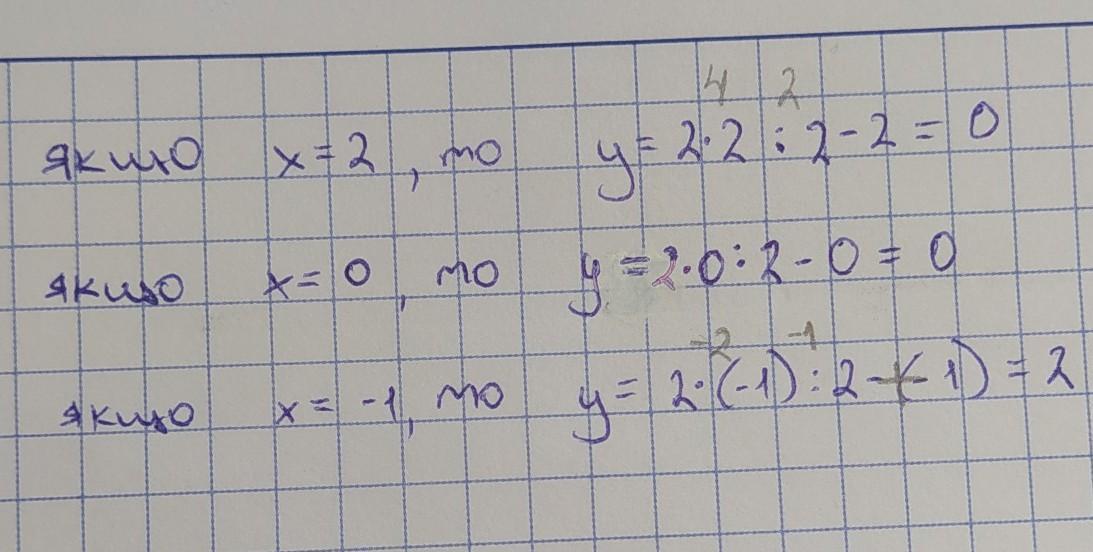 4 2
якщо x = 2 , то y = 2·2 : 2 - 2 = 0
якщо x = 0 , то y = 2·0 : 2 - 0 = 0
-2 -1
якщо x = -1, то y = 2·(-1) : 2 - (-1) = 2